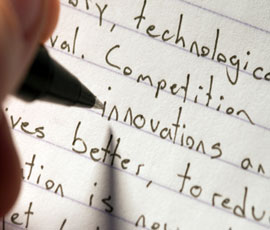 technologica
val. Competition
innovations an
ves better, to redu
tion is